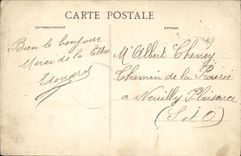 CARTE POSTALE
Correspondance
Adresse
Bien le bonjour
Merci de la
Edouard
Mr Albert
Chemin de la Prairie
a Neuilly Plaisance
(S et O)